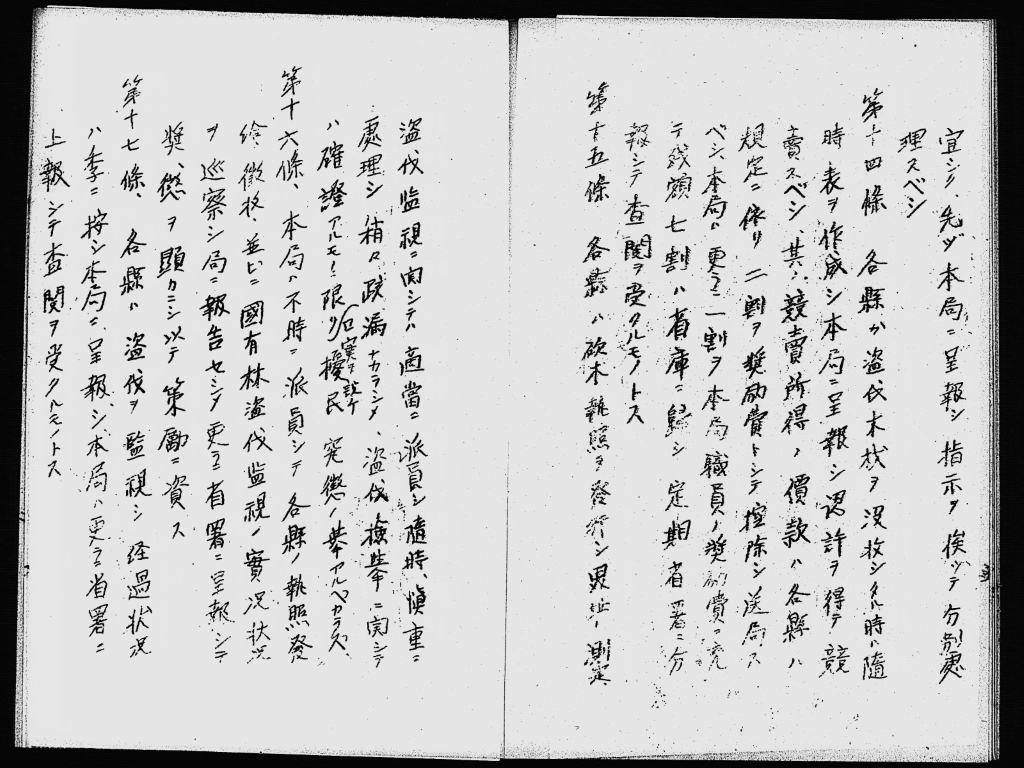 宜シク、先ヅ本局ニ呈報シ指示ヲ俟ッテ分別處
理スベシ
第十四條　各縣カ盜伐木材ヲ沒收シタル時ハ隨
時表ヲ作成シ本局ニ呈報シ認許ヲ得テ競
賣スベシ、其ノ競賣所得ノ價款ハ各縣ハ
規定ニ依リ二割ヲ奬勵費トシテ控除シ送局ス
ベシ、本局ハ更ニ一割ヲ本局職員ノ奬勵費ニ充
テ殘額七割ハ省庫ニ歸シ定期省署ニ分
報シテ查閱ヲ受クルモノトス
第十五條　各縣ハ砍木執照ヲ發行シ界址ノ測定、
盜伐監視ニ関シテハ適當ニ派員シ隨時、愼重ニ
處理シ稍々疎漏ナカラシメ、盜伐檢擧ニ関シテ
ハ確證アルモノニ限リ口實ヲ設ケ擾民寃懲ノ擧アルベカラズ
第十六條、本局ハ不時ニ派員シテ各縣ノ執照發
給、徵收、並ビニ國有林盜伐監視ノ實況狀況
ヲ巡察シ局ニ報告セシメ更ニ省署ニ呈報シテ
奬、懲ヲ顯カニシ以テ策勵ニ資ス
第十七條、各縣ハ盜伐ヲ監視シ経過狀況
ハ季ニ按シ本局ニ呈報シ、本局ハ更ニ省署ニ
上報シテ査閱ヲ受クルモノトス